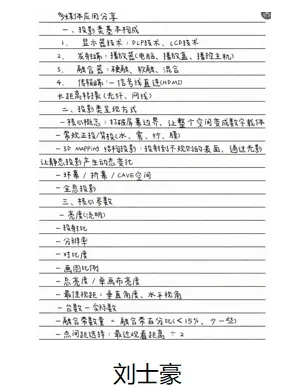 多媒体应用分享
一、投影类基本构成
1. 显示器技术：DLP技术、LCD技术
2. 发射端：播放器(电脑、播放盒、播控主机)
3. 融合器：硬融、软融、混合
4. 传输端：一信号线直连(HDMI)
长距离转换(光纤、网线)
二、投影类呈现方式
－核心概念：打破屏幕边界，让整个空间变成数字载体
－常规正投/背投(水、雾、纱、膜)
－3D MAPPING 结构投影：投射到不规则的表面，通过光影
让静态投影产生动态变化
－环幕/折幕/CAVE空间
－全息投影
三、核心参数
－亮度(流明)
－投射比
－分辨率
－对比度
－画面比例
－总亮度/单画布亮度
－最佳视距：垂直角度、水平视角
－台数－实际数
－融合带数量 = 融合带百分比(<15%，少一些)
－点间距选择：最近观看距离 ÷ 2
刘士豪